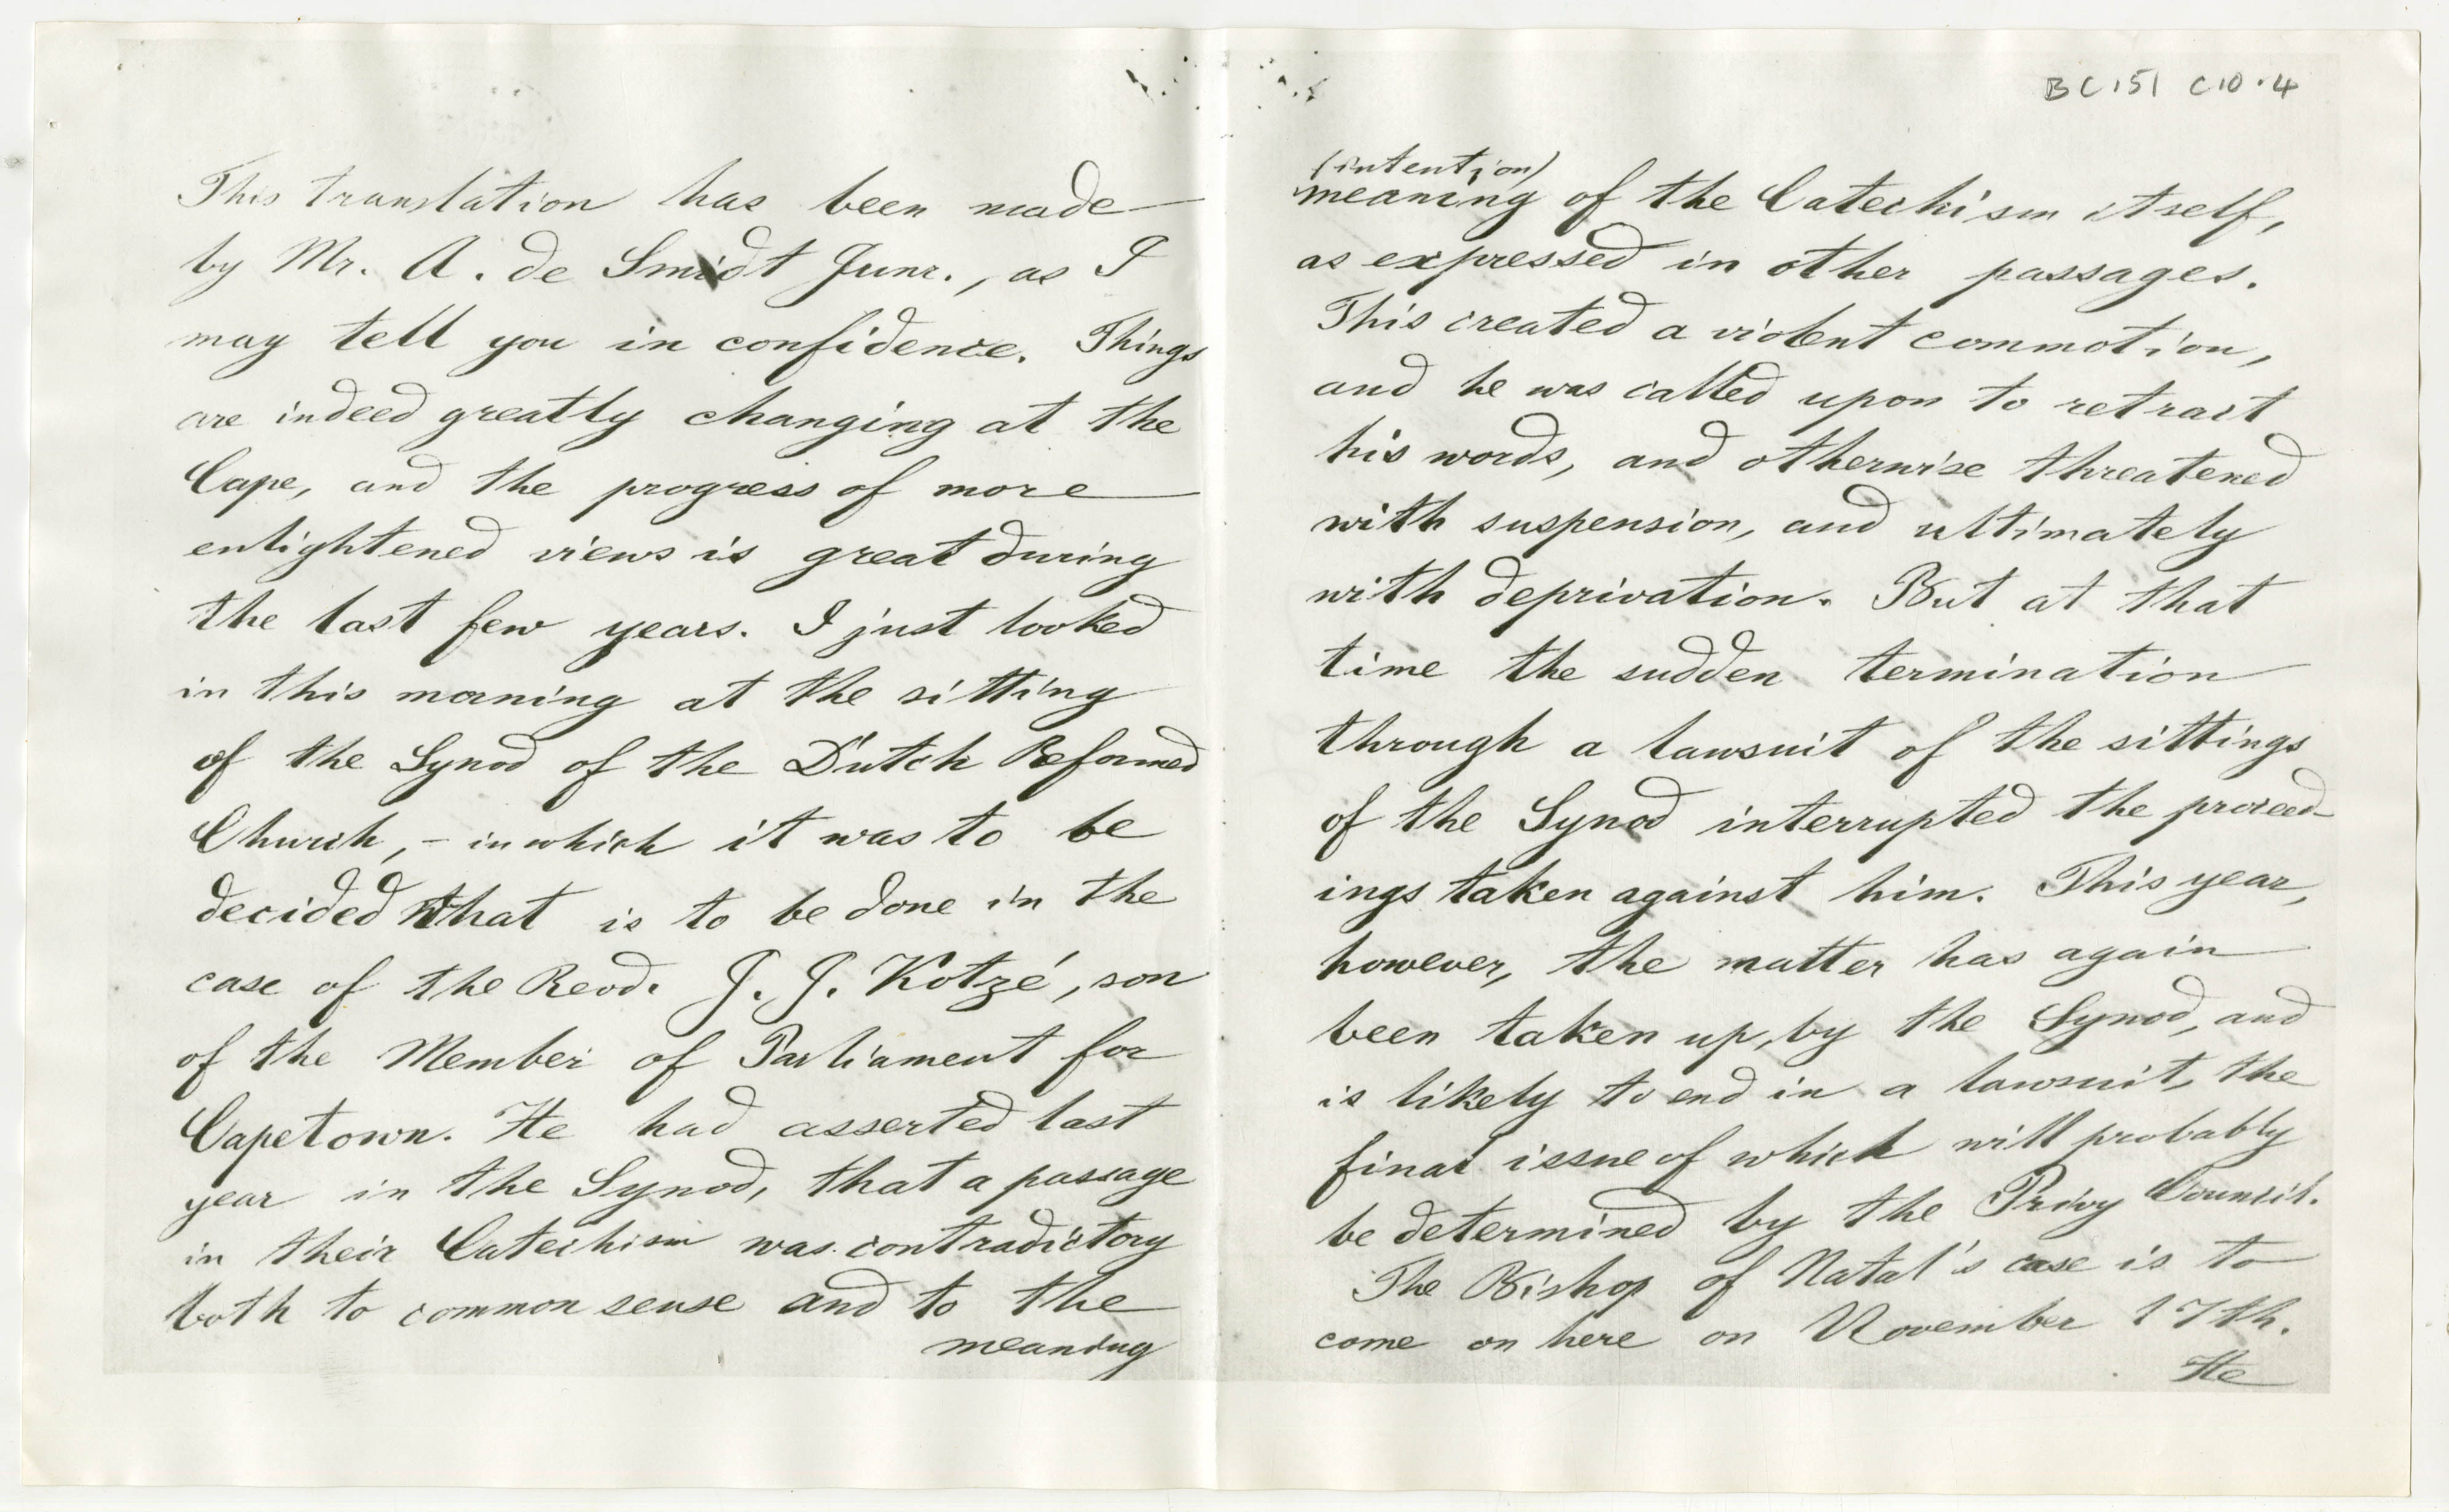 This translation has been made
by Mr. A. de Smidt Junr., as I
may tell you in confidence. Things
are indeed greatly changing at the
Cape, and the progress of more
enlightened views is great during
the last few years. I just looked
in this morning at the sitting
of the Synod of the Dutch Reformed
Church, – in which it was to be
decided what is to be done in the
case of the Revd. J. J. Kotzé, son
of the Member of Parliament for
Capetown. He had asserted last
year in the Synod, that a passage
in their Catechism was contradictory
both to common sense and to the
meaning
BC151 C10.4
(intention)
meaning of the Catechism itself,
as expressed in other passages.
This created a violent commotion,
and he was called upon to retract
his words, and otherwise threatened
with suspension, and ultimately
with deprivation. But at that
time the sudden termination
through a lawsuit of the sittings
of the Synod interrupted the proceed-
ings taken against him. This year,
however, the matter has again
been taken up, by the Synod, and
is likely to end in a lawsuit, the
final issue of which will probably
be determined by the Privy Council.
The Bishop of Natal's case is to
come on here on November 17th.
He